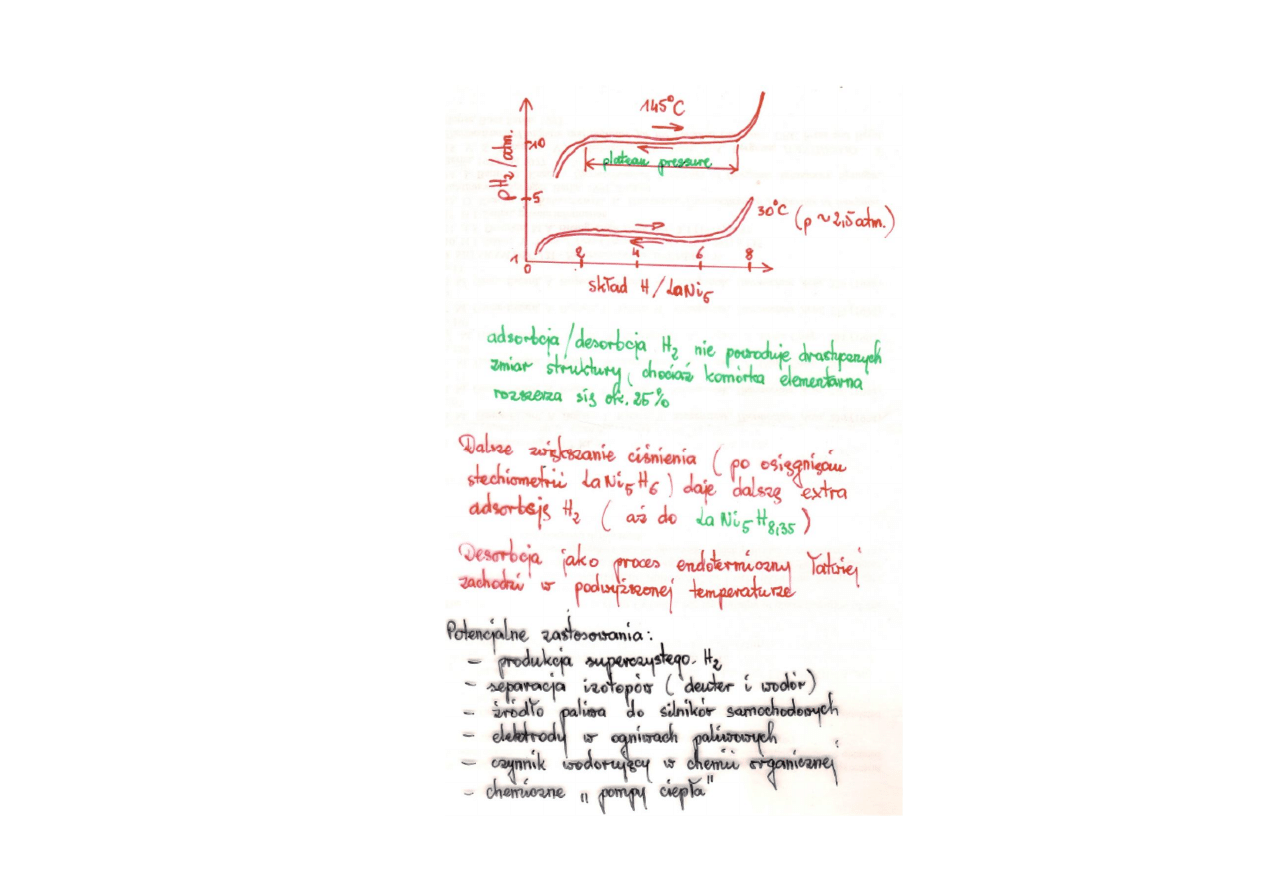 145°C
10
plateau pressure
pH₂/atm.
5
30°C (p ~ 2,5 atm.)
1
0 2 4 6 8
skład H/LaNi₅
adsorbcja/desorbcja H₂ nie powoduje drastycznych
zmian struktury, chociaż komórka elementarna
rozszerza się ok. 25%
Dalsze zwiększanie ciśnienia (po osiągnięciu
stechiometrii LaNi₅H₆) daje dalszą extra
adsorbcję H₂ (aż do LaNi₅H₈,₃₅)
Desorbcja jako proces endotermiczny łatwiej
zachodzi w podwyższonej temperaturze
Potencjalne zastosowania:
– produkcja superczystego H₂
– separacja izotopów (deuter i wodór)
– źródło paliwa do silników samochodowych
– elektrody w ogniwach paliwowych
– czynnik wodorujący w chemii organicznej
– chemiczne „pompy ciepła"